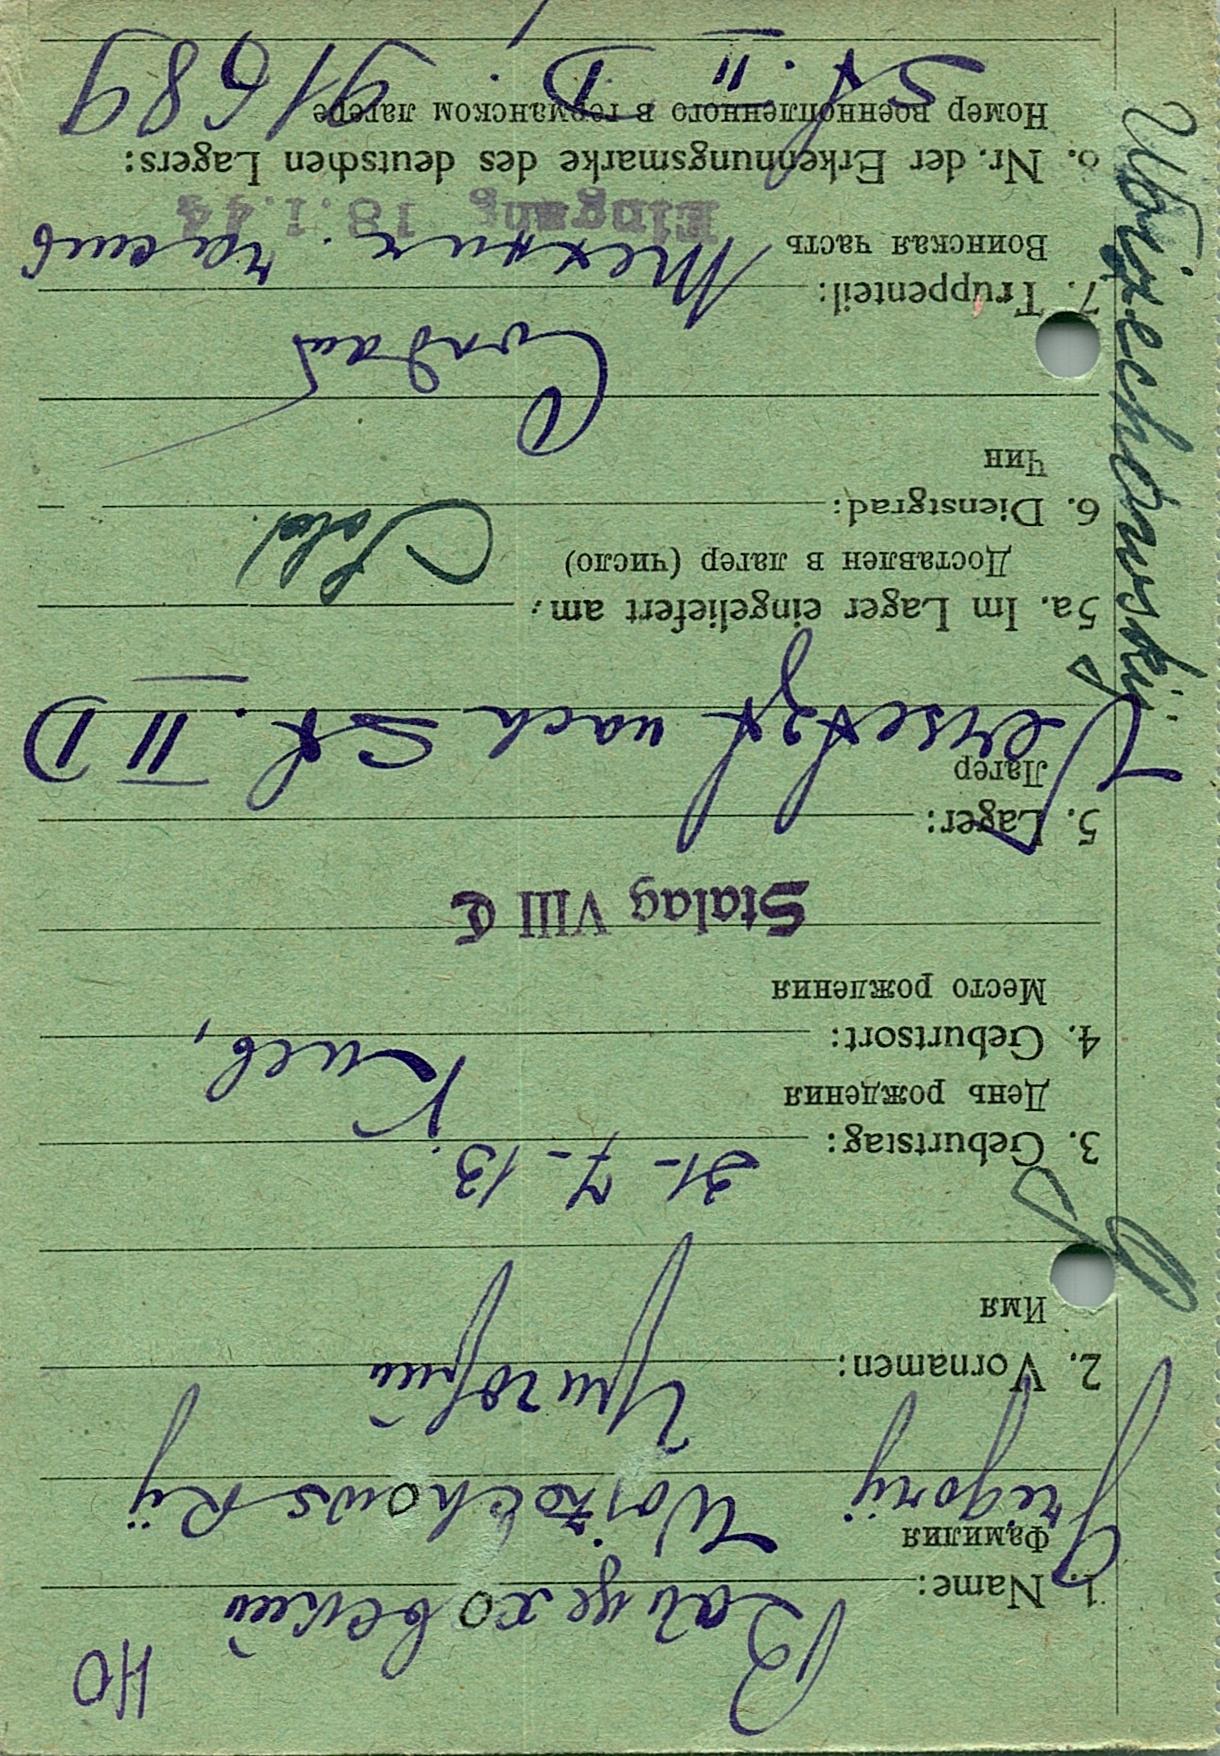 HO
Войцеховский
1. Name:
Фамилия
Wojzechowskij
Gregorij
Григорий
2. Vornamen:
Имя
31-7-13.
3. Geburtstag:
День рождения
Киев,
4. Geburtsort:
Место рождения
Stalag VIII C
5. Lager:
Лагер
Versetzt nach St. II D
5a. Im Lager eingeliefert am:
Доставлен в лагер (число)
Sold.
6. Dienstgrad:
Чин
Солдат
7. Truppenteil:
Воинская часть
Технич. часть
Eingang 18.1.44
8. Nr. der Erkennungsmarke des deutschen Lagers:
Номер военнопленного в германском лагере
St. II D. 91689
Wojzechowskij